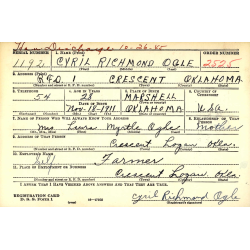 Hon Discharge 10-26-45
SERIAL NUMBER 1. NAME (Print) ORDER NUMBER
1192 CYRIL RICHMOND OGLE 2525
(First) (Middle) (Last)
2. ADDRESS (Print)
R.F.D. 1 CRESCENT OKLAHOMA
3. TELEPHONE 4. AGE IN YEARS 5. PLACE OF BIRTH 6. COUNTRY OF CITIZENSHIP
54 28 MARSHELL
DATE OF BIRTH
Nov. 18-1911 OKLAHOMA U.S.A.
7. NAME OF PERSON WHO WILL ALWAYS KNOW YOUR ADDRESS 8. RELATIONSHIP OF THAT PERSON
Mrs Laura Myrtle Ogle Mother
9. ADDRESS OF THAT PERSON
Crescent Logan Okla.
10. EMPLOYER'S NAME
Self Farmer
11. PLACE OF EMPLOYMENT OR BUSINESS
Crescent Logan Okla.
I AFFIRM THAT I HAVE VERIFIED ABOVE ANSWERS AND THAT THEY ARE TRUE.
REGISTRATION CARD
D. S. S. FORM 1 Cyril Richmond Ogle